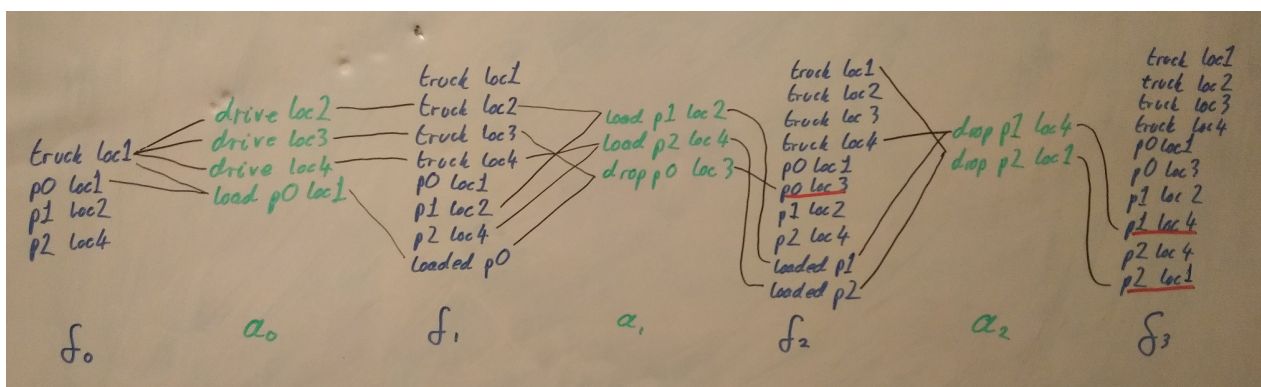 truck loc1
p0 loc1
p1 loc2
p2 loc4
f0
drive loc2
drive loc3
drive loc4
load p0 loc1
a0
truck loc1
truck loc2
truck loc3
truck loc4
p0 loc1
p1 loc2
p2 loc4
loaded p0
f1
load p1 loc2
load p2 loc4
drop p0 loc3
a1
truck loc1
truck loc2
truck loc3
truck loc4
p0 loc1
p0 loc3
p1 loc2
p2 loc4
loaded p1
loaded p2
f2
drop p1 loc4
drop p2 loc1
a2
truck loc1
truck loc2
truck loc3
truck loc4
p0 loc1
p0 loc3
p1 loc2
p1 loc4
p2 loc4
p2 loc1
f3